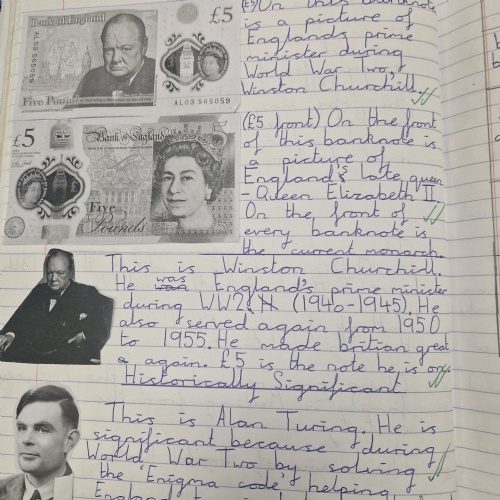 Bank of England
£5
AL03 565059
Five Pounds
AL03 565059
£5
Bank of England
Five
Pounds
(£5) On this banknote
is a picture of
Englands prime
minister during
World War Two,
Winston Churchill.
(£5 front) On the front
of this banknote is
a picture of
England's late queen
- Queen Elizabeth II.
On the front of
every banknote is
the current monarch.
This is Winston Churchill.
He was England's prime minister
during WW2 (1940-1945). He
also served again from 1950
to 1955. He made britian great
a again. £5 is the note he is on.
Historically Significant
This is Alan Turing. He is
significant because during
World War Two by solving
the 'Enigma code' helping
England